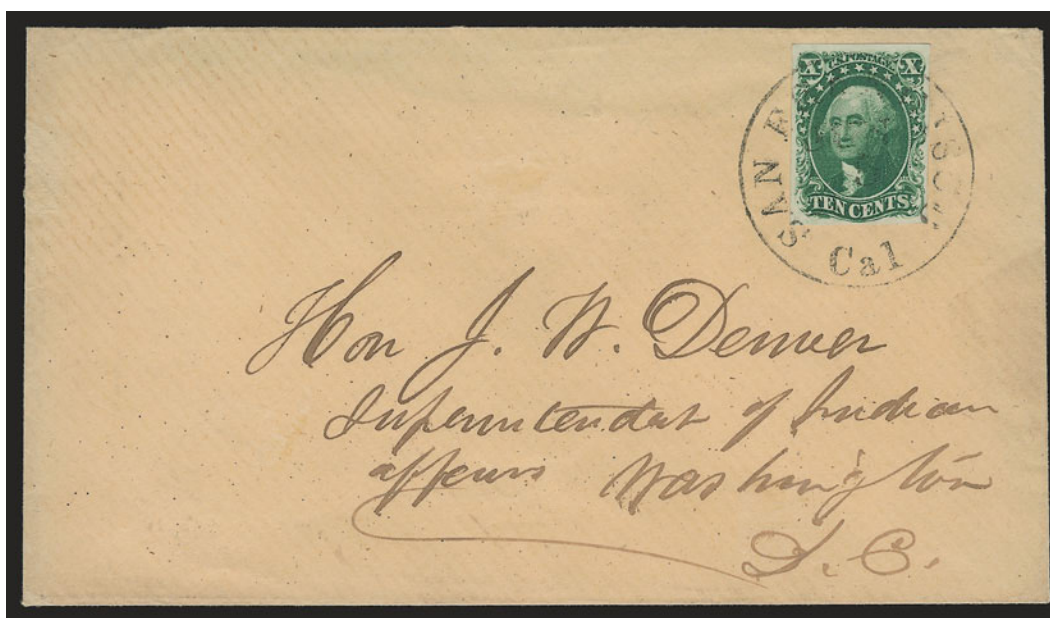 X U.S. POSTAGE X
TEN CENTS.
SAN
Cal
Hon J. W. Denver
Superintendent of Indian
affairs Washington
D. C.